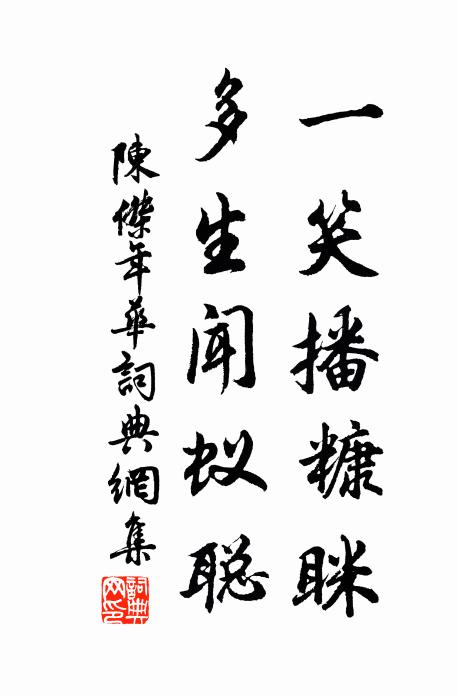 一笑播糠眯
多生闻蚁聪
陳傑年華詞典網集
詞典网印